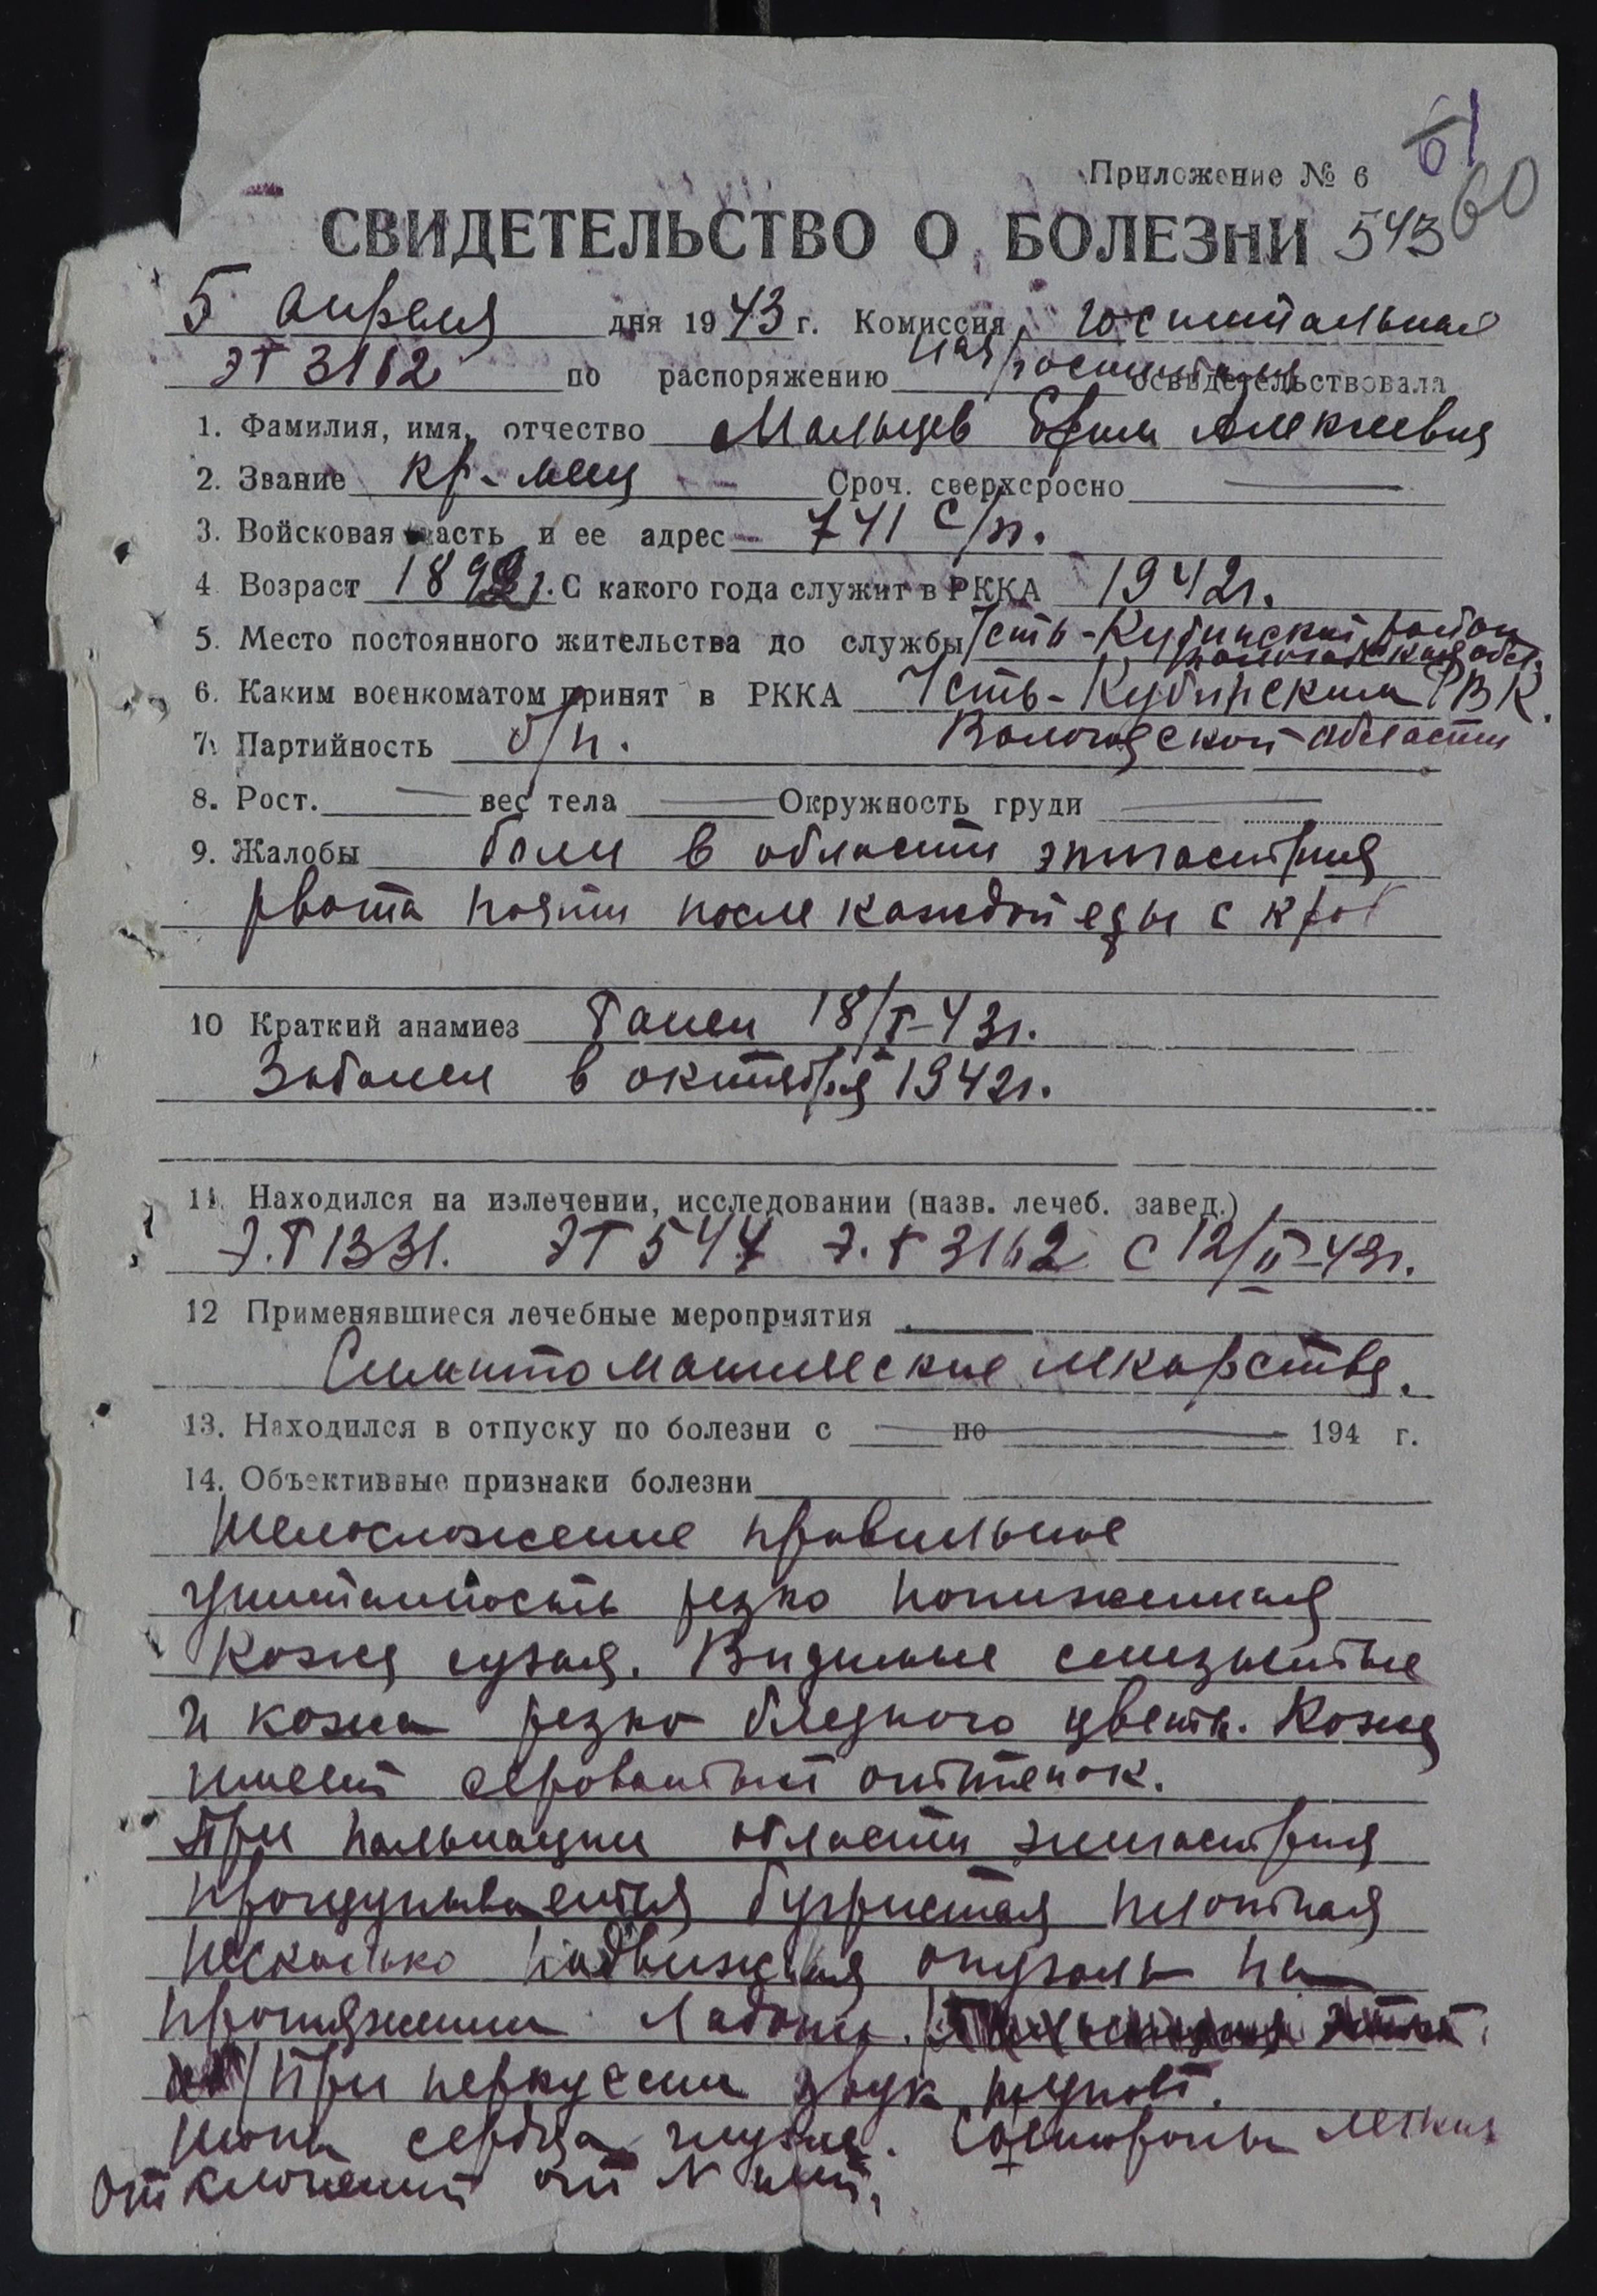 61
Приложение № 6
60
СВИДЕТЕЛЬСТВО О БОЛЕЗНИ 543
5 апреля дня 1943 г. Комиссия госпитальная
ЭГ 3162 по распоряжению нач госпиталя освидетельствовала
1. Фамилия, имя, отчество Мальцев Ефим Алексеевич
2. Звание кр-меец Сроч. сверхсросно
3. Войсковая часть и ее адрес 741 с/п.
4 Возраст 1899 г. С какого года служит в РККА 1942г.
5. Место постоянного жительства до службы Усть-Кубинский район
Вологодская обл.
6. Каким военкоматом принят в РККА Усть-Кубинским РВК.
Вологодской области
7. Партийность б/п.
8. Рост. вес тела Окружность груди
9. Жалобы боли в области эпигастрия
рвота почти после каждой еды с кров
10 Краткий анамнез Ранен 18/I-43г.
Заболел в октябре 1942г.
11. Находился на излечении, исследовании (назв. лечеб. завед.)
Э.Г 1331. ЭГ 544 Э.Г 3162 с 12/II-43г.
12 Применявшиеся лечебные мероприятия
Симптоматические лекарства.
13. Находился в отпуску по болезни с по 194 г.
14. Объективные признаки болезни
Телосложение правильное
упитанность резко пониженная
Кожа сухая. Видимые слизистые
и кожа резко бледного цвета. Кожа
имеет сероватый оттенок.
При пальпации области эпигастрия
прощупывается бугристая плотная
несколько подвижная опухоль на
протяжении ладони.
При перкуссии звук тупой.
Тоны сердца глухие. Со стороны легких
отклонений от N нет.